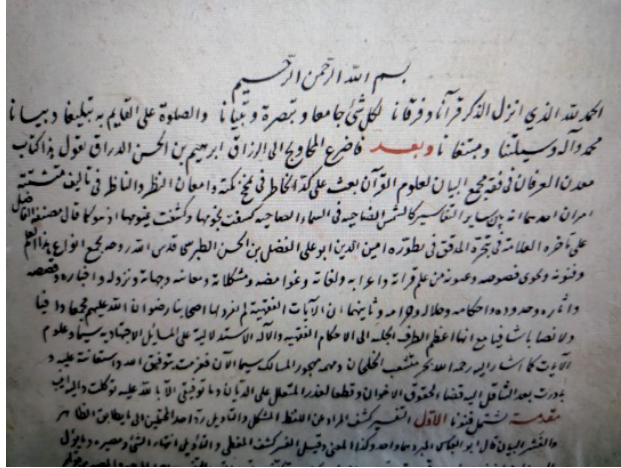 بسم الله الرحمن الرحيم
الحمد لله الذي انزل الذكر قرآنا و فرقانا لكل شئ جامعا و تبصرة و تبيانا والصلوة على القايم به تبليغا و بيانا
محمد وآله وسيلتنا و مستغانا وبعد فاضرع المحاويج الى الرزاق ابرهيم بن الحسن الدراق يقول هذا كتاب
معدن العرفان في فقه مجمع البيان لعلوم القرآن بعث على كد الخاطر في مخ نكته و امعان النظر والناظر في تاليف مشتته
امران احدهما انه بين ساير التفاسير كالشمس الضاحيه في السماء الصاحيه كسفت نجومها وكشفت غيومها اذ هو كما قال مصنفه الفاضل
على تأخره العلامة في تبحره المدقق في تطوره امين الدين ابو علي الفضل بن الحسن الطبرسي قدس الله روحه بجمع انواع هذا العلم
وفنونه و يحوى فصوصه وعيونه من علم قرائه واعرابه ولغاته وغوامضه ومشكلاته ومعانيه وجهاته ونزوله و اخباره وقصصه
وآثاره وحدوده واحكامه وحلاله وحرامه وثانيهما ان الآيات الفقهية لم يفردها اصحابنا رضوان الله عليهم مجمعا وافيا
ولا نصا شافيا مع انها اعظم الطرف الى الاحكام الفقهيه والآلة الاستدلالية على المسائل الاجتهاديه سيما وعلوم
الآيات كما اشار اليه رحمه الله بحر متشعب الخلجان ومهمه مهجور المسالك سيما الآن فعزمت بتوفيق احد واستعانة عليه و
بادرت بعد التثاقل اليه قضاء لحقوق الاخوان وقطعا لعذر المتعلل على الديان وما توفيقي الا بالله عليه توكلت واليه انيب
مقدمة تشتمل فنونا الاول التفسير كشف المراد عن اللفظ المشكل والتأويل رد احد المحتملين الى ما يطابق الظاهر
والتفسير البيان قال ابو العباس المبرد هما واحد وكذا المعنى وقيل الفسر كشف المغطى والتأويل انتهاء الشئ ومصيره وما يؤل